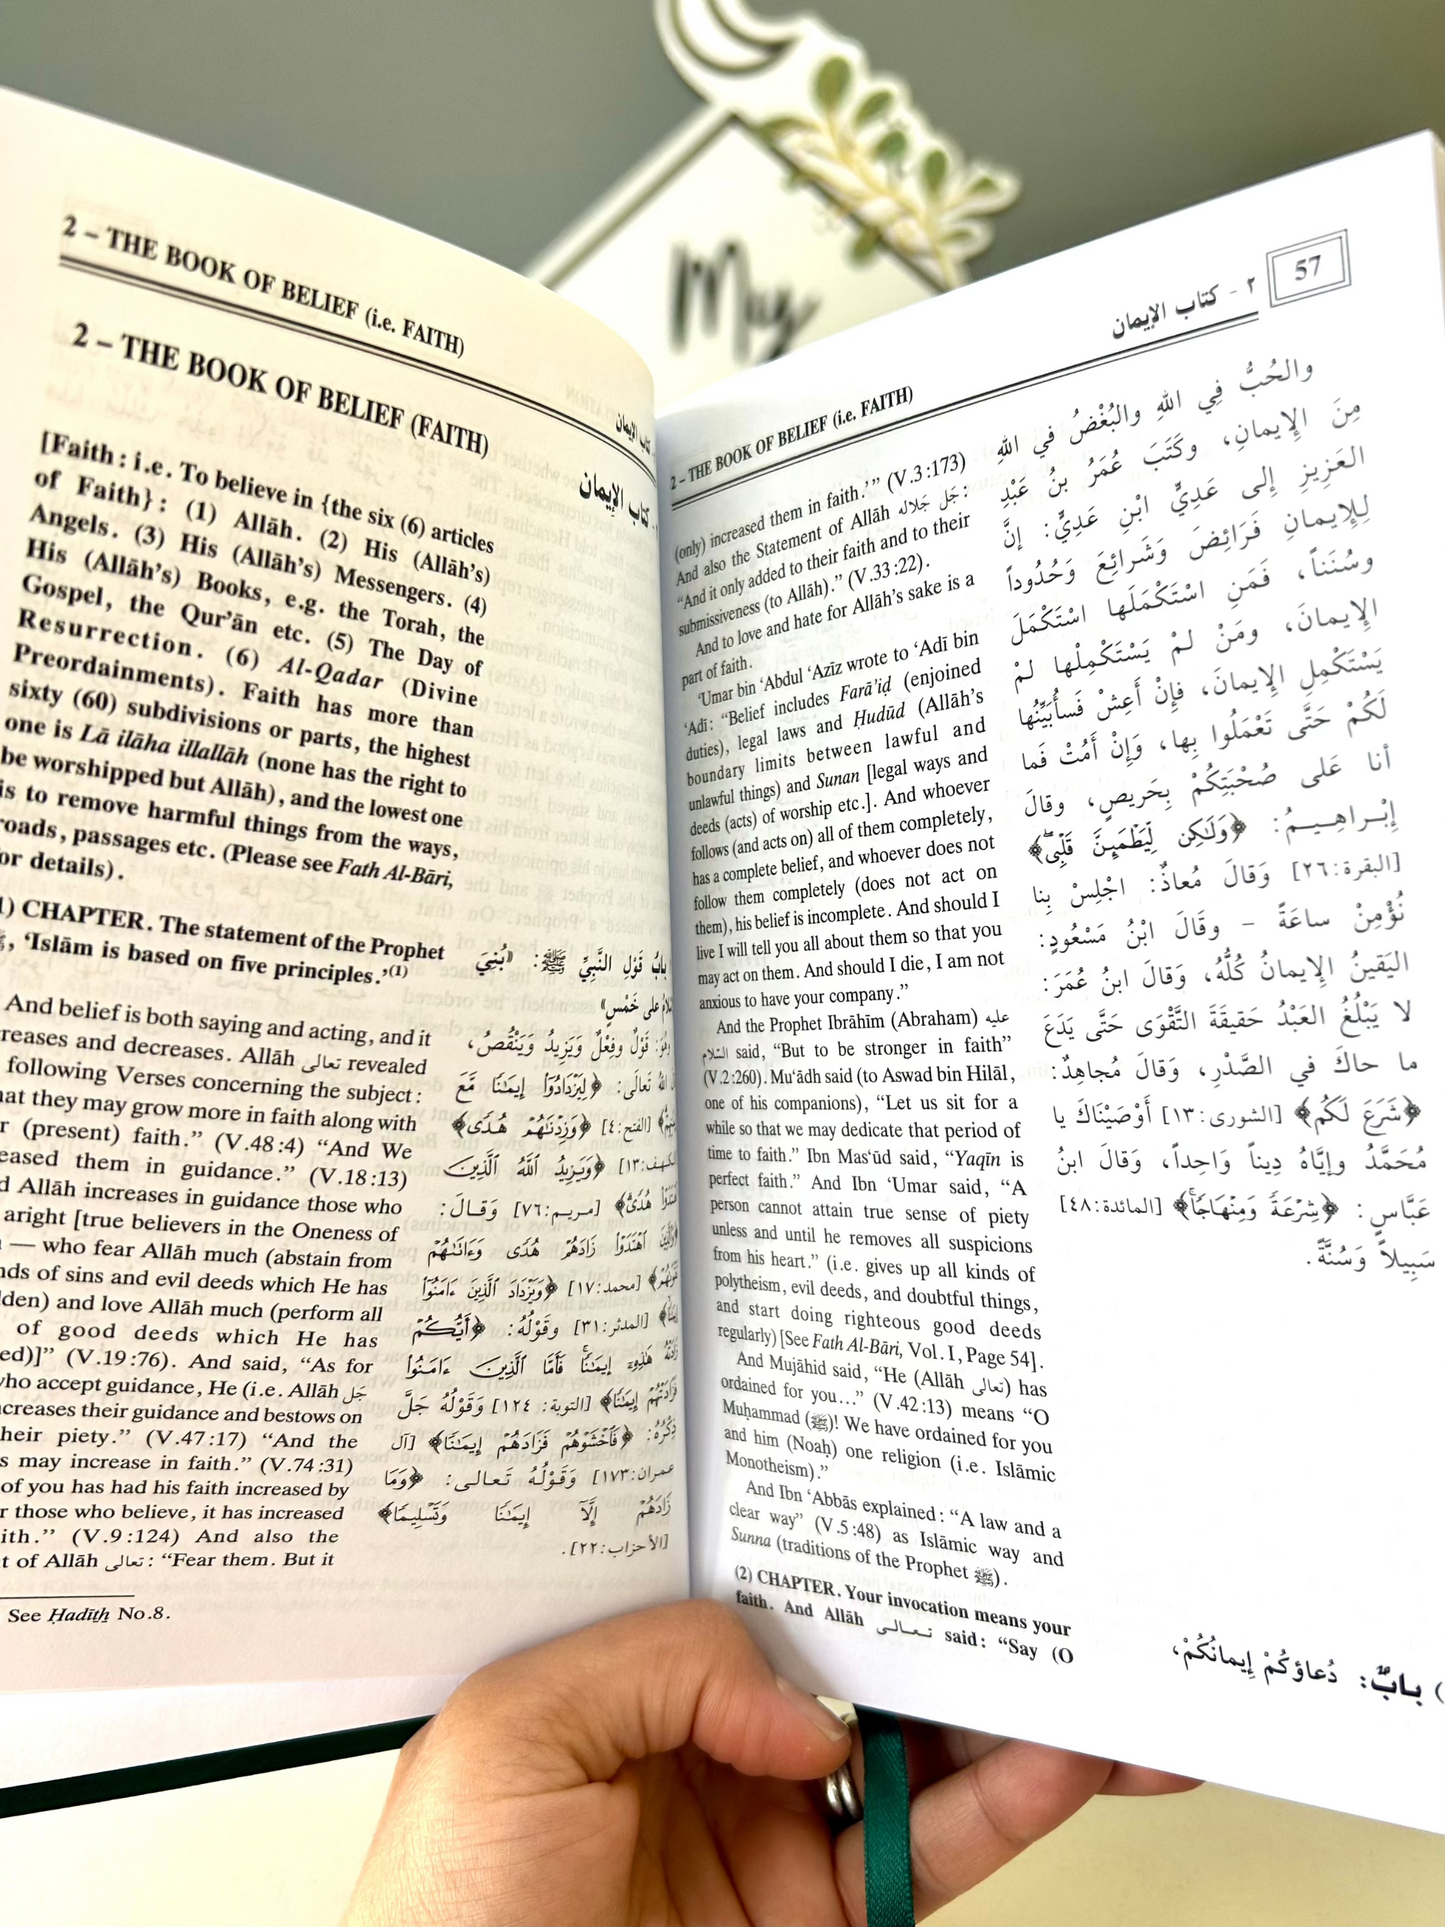 My
2 – THE BOOK OF BELIEF (i.e. FAITH)
كتاب الإيمان
2 – THE BOOK OF BELIEF (FAITH)
كتاب الإيمان
[Faith : i.e. To believe in {the six (6) articles
of Faith} : (1) Allāh. (2) His (Allāh’s)
Angels. (3) His (Allāh’s) Messengers. (4)
His (Allāh’s) Books, e.g. the Torah, the
Gospel, the Qur’ān etc. (5) The Day of
Resurrection. (6) Al-Qadar (Divine
Preordainments). Faith has more than
sixty (60) subdivisions or parts, the highest
one is Lā ilāha illallāh (none has the right to
be worshipped but Allāh), and the lowest one
is to remove harmful things from the ways,
roads, passages etc. (Please see Fath Al-Bāri,
for details).
1) CHAPTER. The statement of the Prophet
ﷺ, ‘Islām is based on five principles.’(1)
And belief is both saying and acting, and it
creases and decreases. Allāh تعالى revealed
following Verses concerning the subject :
hat they may grow more in faith along with
r (present) faith.” (V.48:4) “And We
eased them in guidance.” (V.18:13)
d Allāh increases in guidance those who
aright [true believers in the Oneness of
— who fear Allāh much (abstain from
nds of sins and evil deeds which He has
dden) and love Allāh much (perform all
of good deeds which He has
ed)]” (V.19:76). And said, “As for
who accept guidance, He (i.e. Allāh جل
ncreases their guidance and bestows on
heir piety.” (V.47:17) “And the
s may increase in faith.” (V.74:31)
of you has had his faith increased by
r those who believe, it has increased
ith.” (V.9:124) And also the
t of Allāh تعالى : “Fear them. But it
See Ḥadīth No.8.
بابُ قَوْلِ النَّبِيِّ ﷺ: «بُنِيَ
على خَمْسٍ»
قَوْلٌ وفِعْلٌ وَيَزِيدُ وَيَنْقُصُ،
اللهُ تَعَالَى: ﴿لِيَزْدَادُوٓا۟ إِيمَـٰنًا مَّعَ
[الفتح:٤] ﴿وَزِدْنَـٰهُمْ هُدًى﴾
[الكهف:١٣] ﴿وَيَزِيدُ ٱللَّهُ ٱلَّذِينَ
هُدًى﴾ [مريم:٧٦] وَقَالَ:
ٱهْتَدَوْا۟ زَادَهُمْ هُدًى وَءَاتَىٰهُمْ
[محمد:١٧] ﴿وَيَزْدَادَ ٱلَّذِينَ ءَامَنُوٓا۟
[المدثر:٣١] وقَوْلُهُ: ﴿أَيُّكُمْ
زَادَتْهُ هَـٰذِهِۦٓ إِيمَـٰنًا ۚ فَأَمَّا ٱلَّذِينَ ءَامَنُوا۟
فَزَادَتْهُمْ إِيمَـٰنًا﴾ [التوبة: ١٢٤] وَقَوْلُهُ جَلَّ
ذِكْرُهُ: ﴿فَٱخْشَوْهُمْ فَزَادَهُمْ إِيمَـٰنًا﴾ [آل
عمران:١٧٣] وَقَوْلُهُ تَعَالى: ﴿وَمَا
زَادَهُمْ إِلَّآ إِيمَـٰنًا وَتَسْلِيمًا﴾
[الأحزاب:٢٢].
2 – THE BOOK OF BELIEF (i.e. FAITH)
٢ - كتاب الإيمان
57
(only) increased them in faith.’ ” (V.3:173)
And also the Statement of Allāh جَل جَلاله :
“And it only added to their faith and to their
submissiveness (to Allāh).” (V.33:22).
And to love and hate for Allāh’s sake is a
part of faith.
‘Umar bin ‘Abdul ‘Azīz wrote to ‘Adī bin
‘Adī: “Belief includes Farā’iḍ (enjoined
duties), legal laws and Ḥudūd (Allāh’s
boundary limits between lawful and
unlawful things) and Sunan [legal ways and
deeds (acts) of worship etc.]. And whoever
follows (and acts on) all of them completely,
has a complete belief, and whoever does not
follow them completely (does not act on
them), his belief is incomplete. And should I
live I will tell you all about them so that you
may act on them. And should I die, I am not
anxious to have your company.”
And the Prophet Ibrāhīm (Abraham) عليه
السّلام said, “But to be stronger in faith”
(V.2:260). Mu‘ādh said (to Aswad bin Hilāl,
one of his companions), “Let us sit for a
while so that we may dedicate that period of
time to faith.” Ibn Mas‘ūd said, “Yaqīn is
perfect faith.” And Ibn ‘Umar said, “A
person cannot attain true sense of piety
unless and until he removes all suspicions
from his heart.” (i.e. gives up all kinds of
polytheism, evil deeds, and doubtful things,
and start doing righteous good deeds
regularly) [See Fath Al-Bāri, Vol. I, Page 54].
And Mujāhid said, “He (Allāh تعالى) has
ordained for you...” (V.42:13) means “O
Muḥammad (ﷺ)! We have ordained for you
and him (Noaḥ) one religion (i.e. Islāmic
Monotheism).”
And Ibn ‘Abbās explained: “A law and a
clear way” (V.5:48) as Islāmic way and
Sunna (traditions of the Prophet ﷺ).
(2) CHAPTER. Your invocation means your
faith. And Allāh تعالى said: “Say (O
والحُبُّ فِي اللهِ والبُغْضُ في اللهِ
مِنَ الإِيمانِ، وكَتَبَ عُمَرُ بنُ عَبْدِ
العَزِيزِ إلى عَدِيِّ ابْنِ عَدِيٍّ: إنَّ
لِلإِيمانِ فَرَائِضَ وَشَرائِعَ وَحُدُوداً
وسُنَناً، فَمَنِ اسْتَكْمَلَها اسْتَكْمَلَ
الإِيمانَ، ومَنْ لمْ يَسْتَكْمِلْها لمْ
يَسْتَكْمِلِ الإِيمانَ، فإِنْ أَعِشْ فَسأُبَيِّنُها
لَكُمْ حَتَّى تَعْمَلُوا بِها، وَإِنْ أَمُتْ فَما
أنا عَلى صُحْبَتِكُمْ بِحَرِيصٍ، وقالَ
إِبْراهِيمُ: ﴿وَلَـٰكِن لِّيَطْمَئِنَّ قَلْبِى﴾
[البقرة:٢٦] وَقَالَ مُعاذٌ: اجْلِسْ بِنا
نُؤْمِنْ ساعَةً - وقَالَ ابْنُ مَسْعُودٍ:
اليَقِينُ الإِيمانُ كُلُّهُ، وَقَالَ ابنُ عُمَرَ:
لا يَبْلُغُ العَبْدُ حَقِيقَةَ التَّقْوَى حَتَّى يَدَعَ
ما حاكَ في الصَّدْرِ، وَقَالَ مُجاهِدٌ:
﴿شَرَعَ لَكُم﴾ [الشورى:١٣] أَوْصَيْناكَ يا
مُحَمَّدُ وإيَّاهُ دِيناً وَاحِداً، وَقَالَ ابنُ
عَبَّاسٍ: ﴿شِرْعَةً وَمِنْهَاجًا﴾ [المائدة:٤٨]
سَبِيلاً وَسُنَّةً.
بابٌ: دُعاؤكُمْ إِيمانُكُمْ،